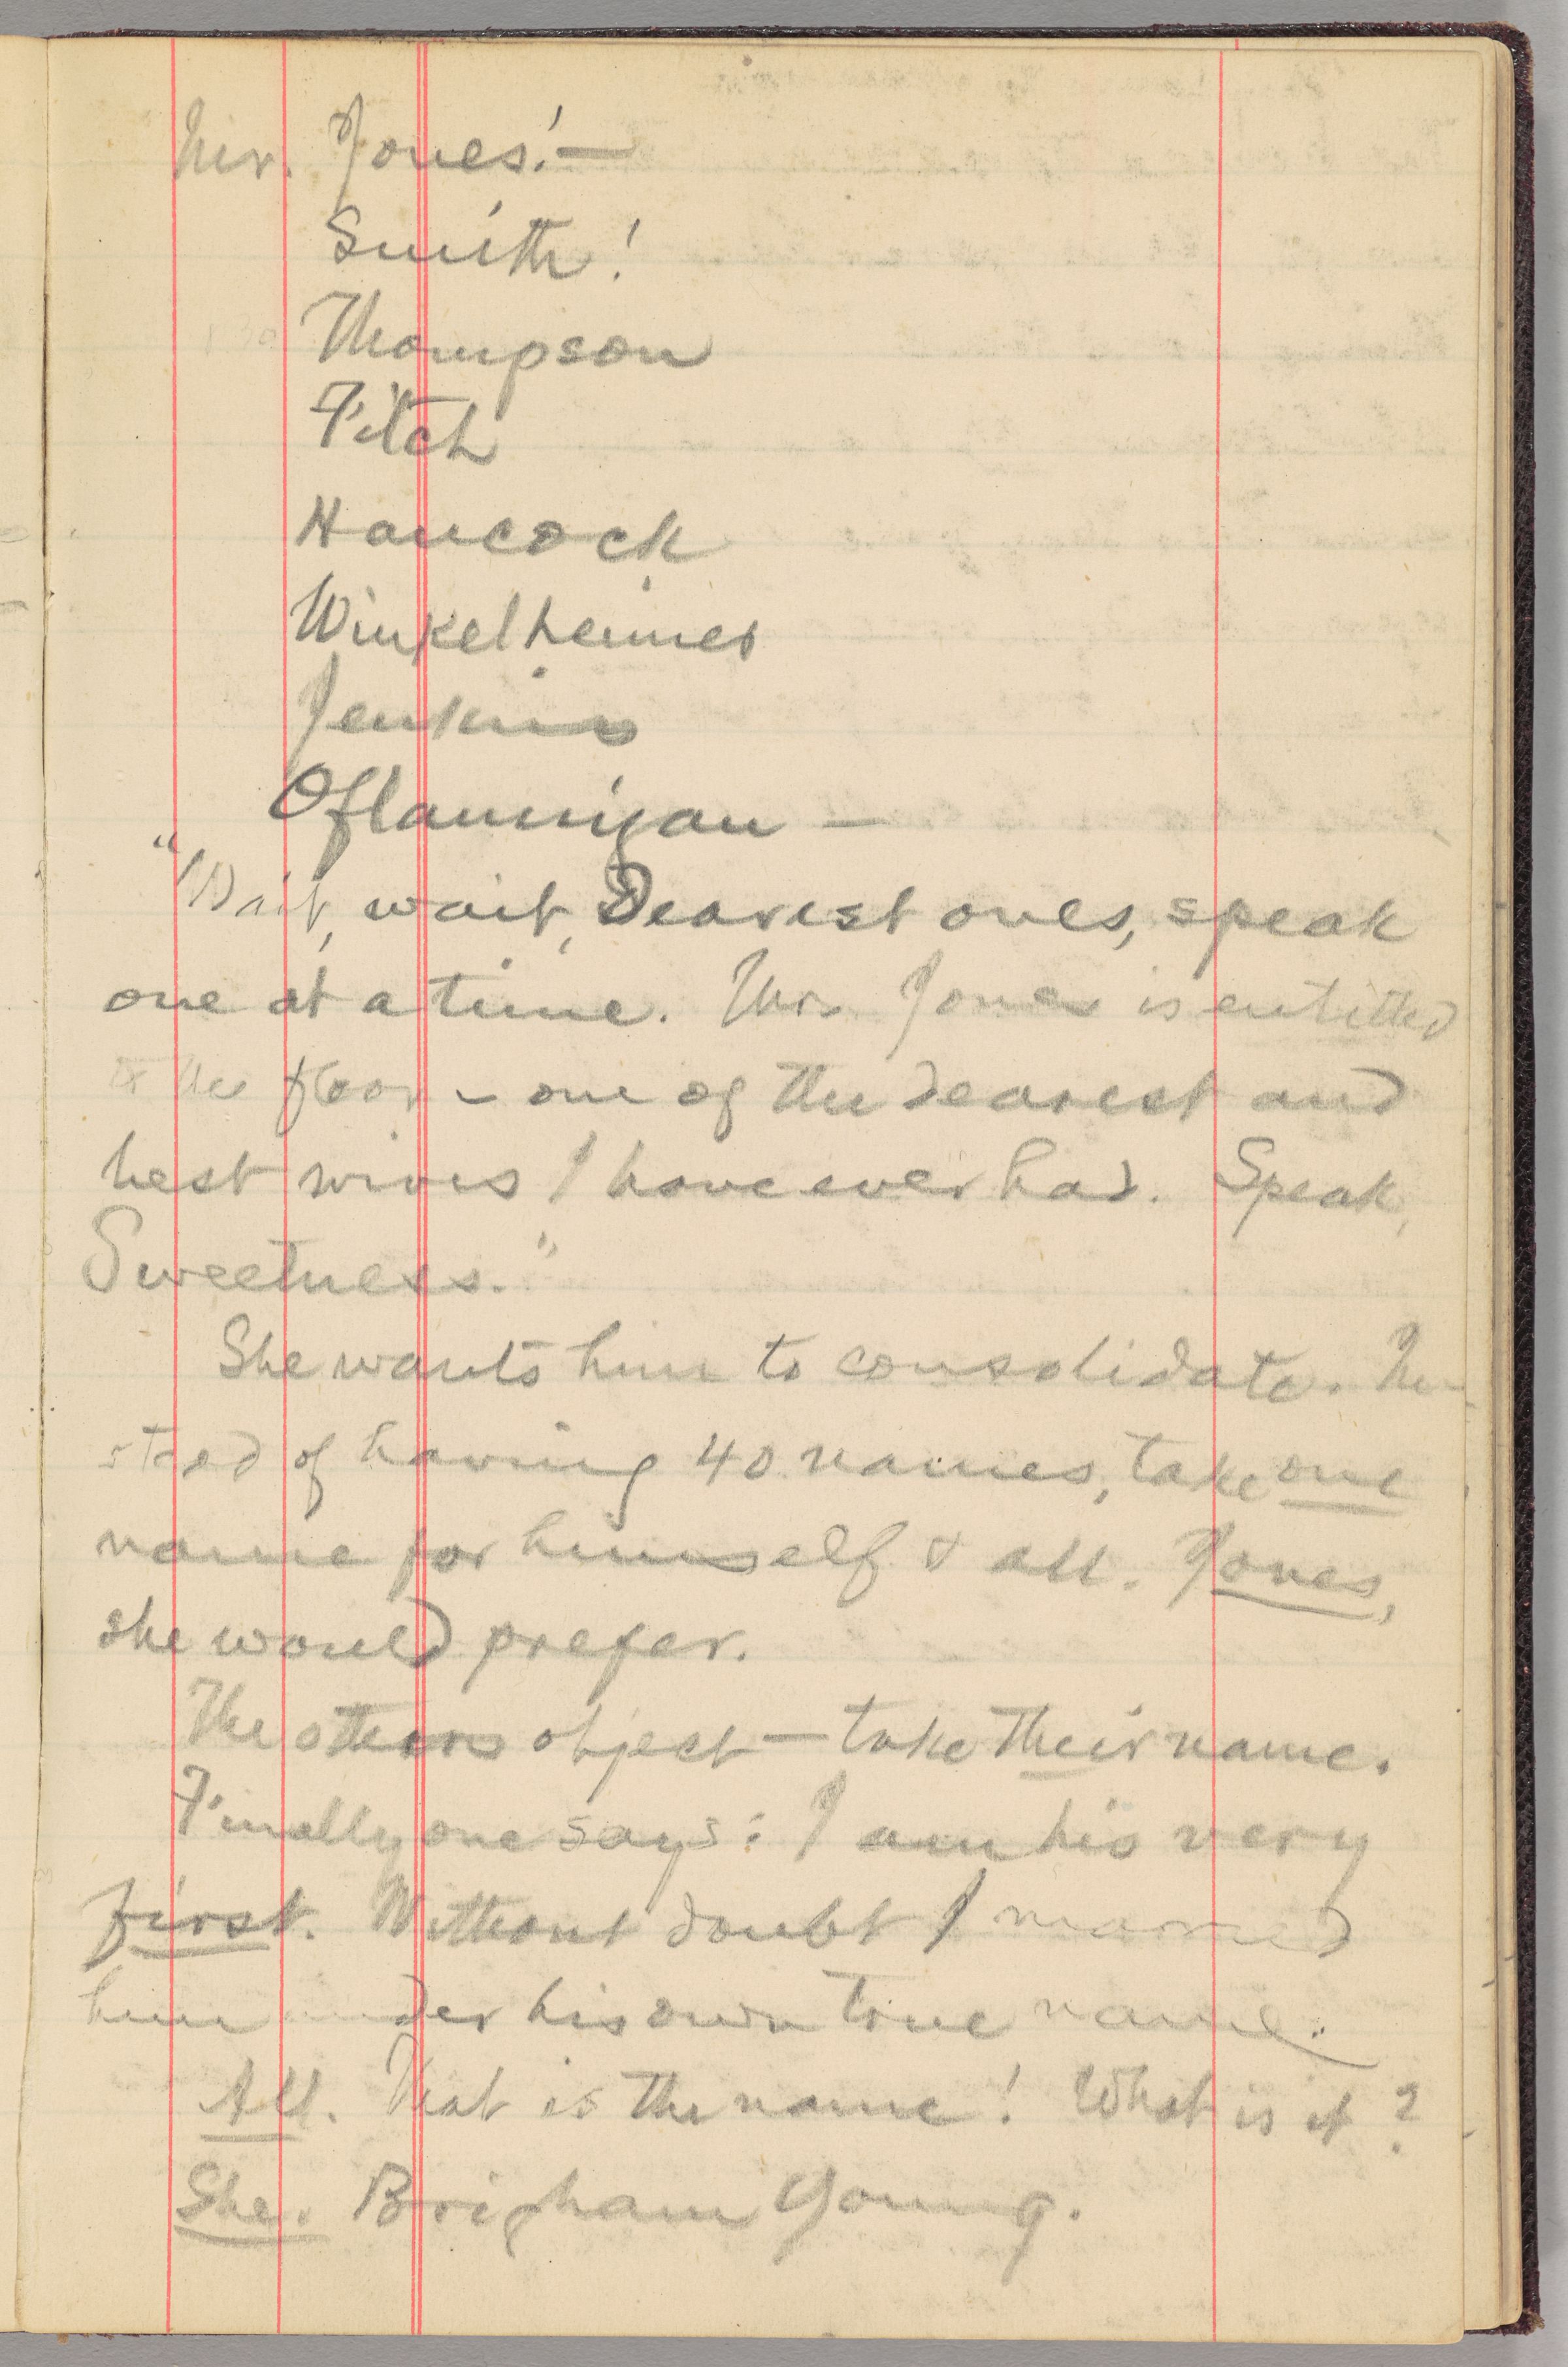 Mr. Jones!—
Smith!
Thompson
Fitch
Hancock
Winkelheimer
Jenkins
Oflannigan —
"Wait, wait, Dearest ones, speak
one at a time. Mrs. Jones is entitled
to the floor — one of the dearest and
best wives I have ever had. Speak,
Sweetness."
She wants him to consolidate. In-
stead of having 40 names, take one
name for himself & all. Jones,
she would prefer.
The others object — take their name.
Finally one says: I am his very
first. Without doubt I married
him under his own true name.
All. That is the name! What is it?
She. Brigham Young.